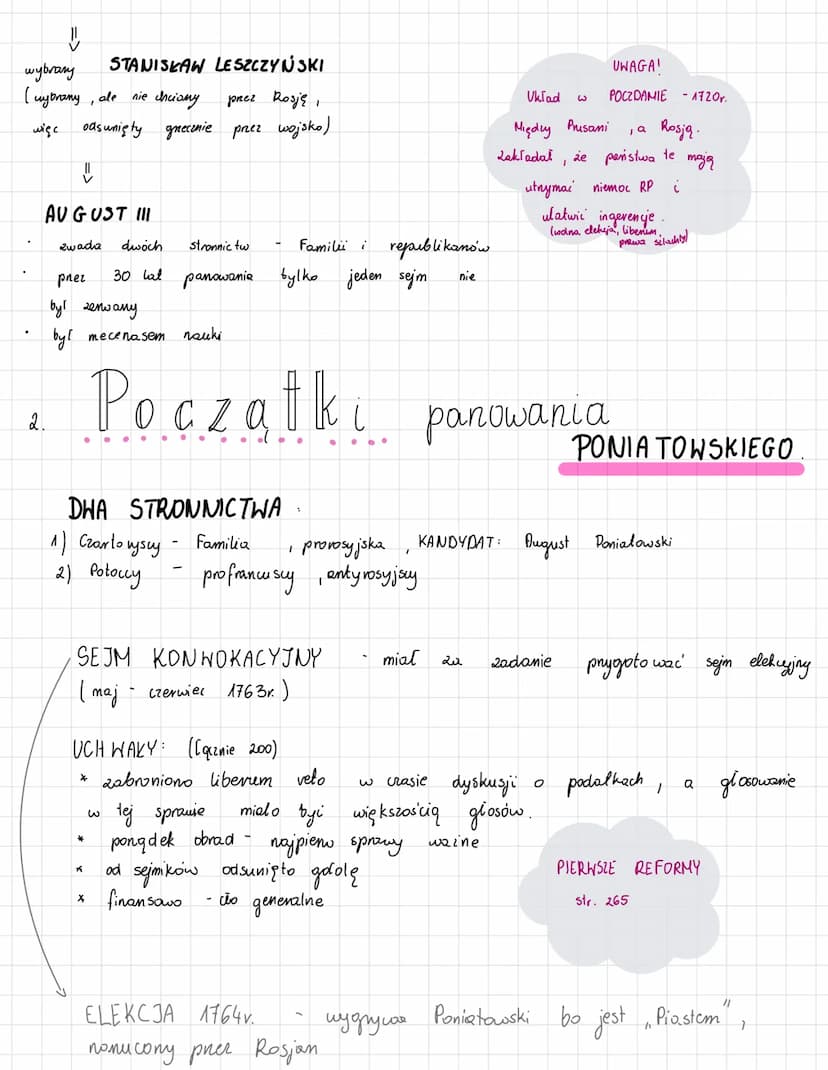 ⇓
wybrany STANISŁAW LESZCZYŃSKI
(wybrany, ale nie chciany przez Rosję,
więc odsunięty grzecznie przez wojsko)
⇓
AUGUST III
· zwada dwóch stronnictw - Familii i republikanów
· przez 30 lat panowania tylko jeden sejm nie
był zerwany
· był mecenasem nauki
UWAGA!
Układ w POCZDAMIE - 1720r.
Między Prusami, a Rosją.
Zakładał, że państwa te mają
utrzymać niemoc RP i
ułatwić ingerencje.
(wolna elekcja, liberum,
prawa szlachty)
2. Początki panowania
PONIATOWSKIEGO.
DWA STRONNICTWA.
1) Czartoryscy - Familia, prorosyjska, KANDYDAT: August Poniatowski
2) Potoccy - profrancuscy, antyrosyjscy
SEJM KONWOKACYJNY - miał za zadanie przygotować sejm elekcyjny
(maj - czerwiec 1763r.)
UCHWAŁY: (łącznie 200)
* zabroniono liberum veto w czasie dyskusji o podatkach, a głosowanie
w tej sprawie miało być większością głosów.
* porządek obrad - najpierw sprawy ważne
* od sejmików odsunięto gołotę
* finansowo - cło generalne
PIERWSZE REFORMY
str. 265
ELEKCJA 1764r. - wygrywa Poniatowski bo jest „Piastem",
narzucony przez Rosjan